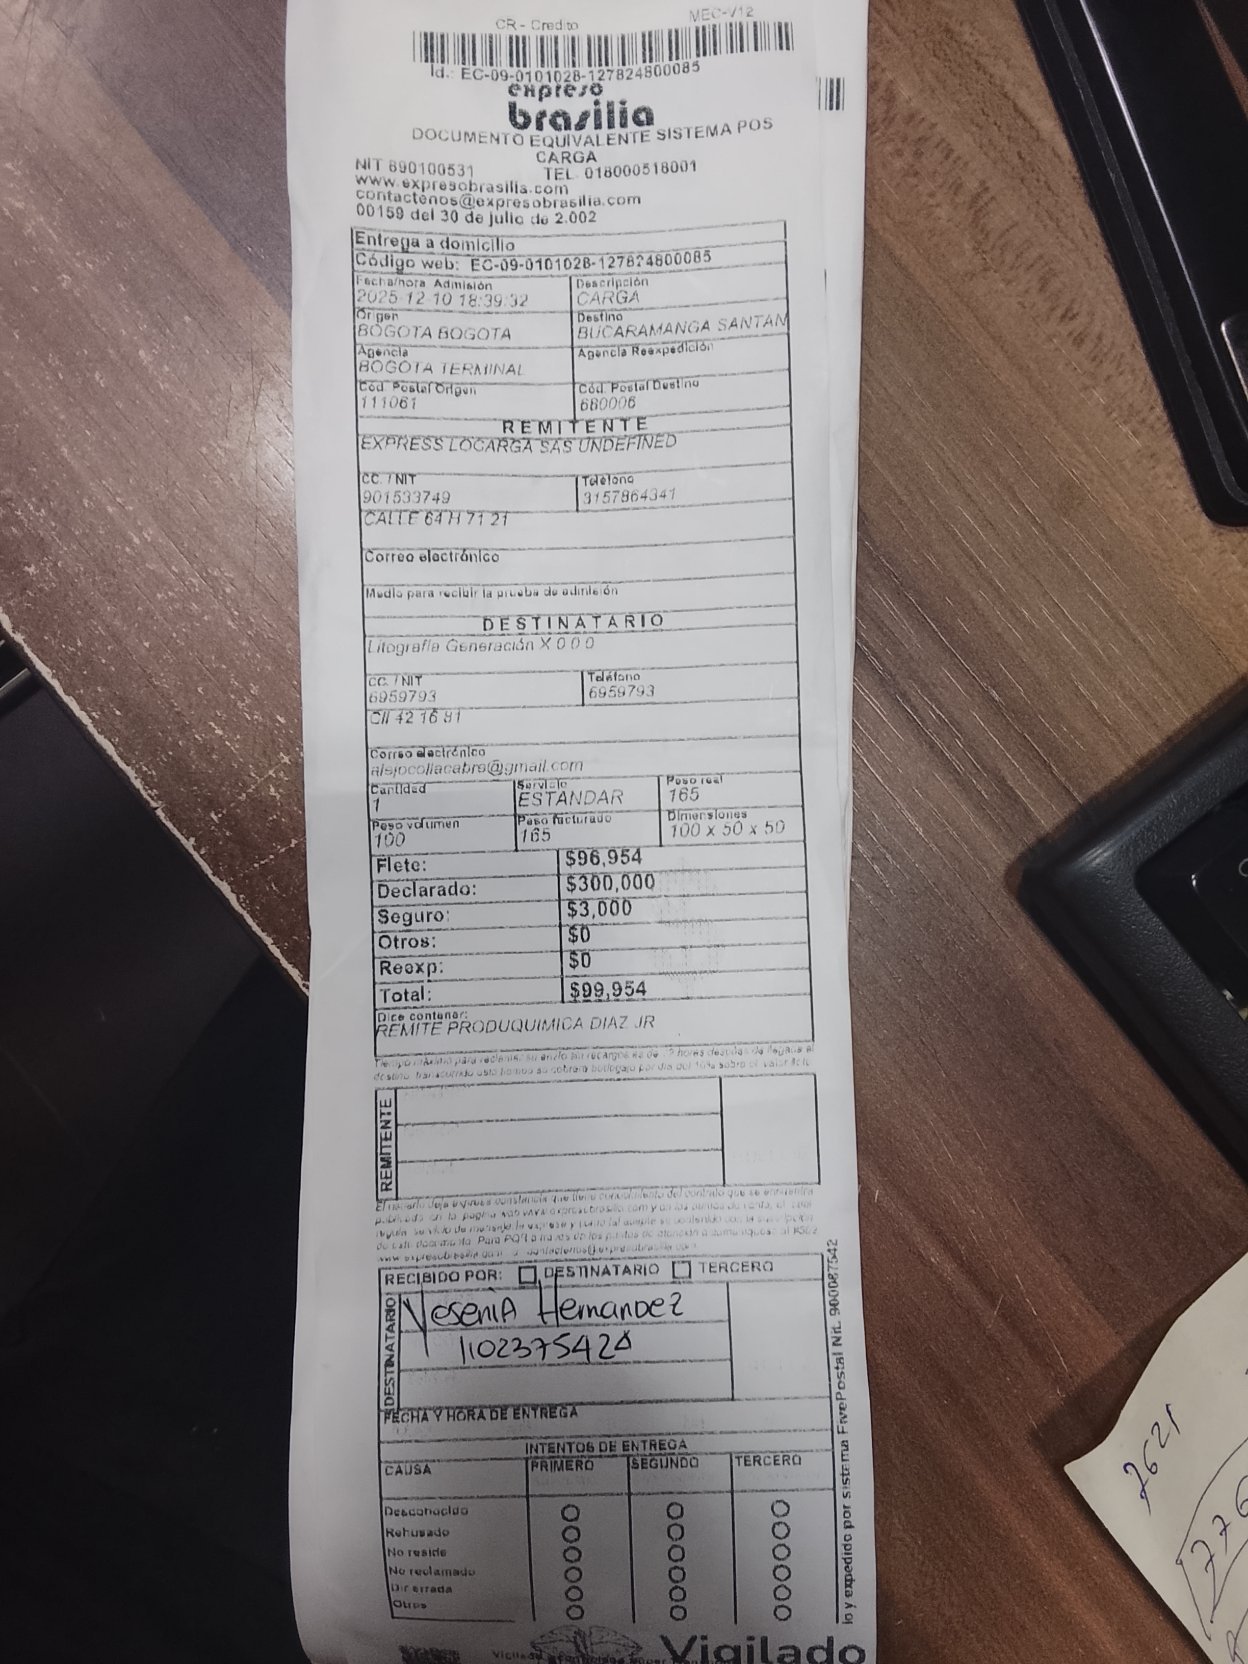 CR - Credito MEC-V12
Id.: EC-09-0101028-127824800085
expreso
brasilia
DOCUMENTO EQUIVALENTE SISTEMA POS
CARGA
NIT 890100531 TEL. 018000518001
www.expresobrasilia.com
contactenos@expresobrasilia.com
00159 del 30 de julio de 2.002
Entrega a domicilio
Código web: EC-09-0101028-127824800085
Fecha/hora Admisión Descripción
2025-12-10 18:39:32 CARGA
Origen Destino
BOGOTA BOGOTA BUCARAMANGA SANTAN
Agencia Agencia Reexpedición
BOGOTA TERMINAL
Cód. Postal Origen Cód. Postal Destino
111061 680006
REMITENTE
EXPRESS LOCARGA SAS UNDEFINED
CC. / NIT Teléfono
901533749 3157864341
CALLE 64 H 71 21
Correo electrónico
Medio para recibir la prueba de admisión
DESTINATARIO
Litografia Generación X 0 0 0
CC. / NIT Teléfono
6959793 6959793
Cll 42 16 81
Correo electrónico
alejocollacabra@gmail.com
Cantidad Servicio Peso real
1 ESTANDAR 165
Peso volumen Peso facturado Dimensiones
100 165 100 x 50 x 50
Flete: $96,954
Declarado: $300,000
Seguro: $3,000
Otros: $0
Reexp: $0
Total: $99,954
Dice contener:
REMITE PRODUQUIMICA DIAZ JR
REMITENTE
RECIBIDO POR: DESTINATARIO TERCERO
DESTINATARIO
Yesenia Hernandez
1102375424
FECHA Y HORA DE ENTREGA
INTENTOS DE ENTREGA
CAUSA PRIMERO SEGUNDO TERCERO
Desconocido
Rehusado
No reside
No reclamado
Dir errada
Otros
lo y expedido por sistema FivePostal Nit. 900087542
Vigilado
2621